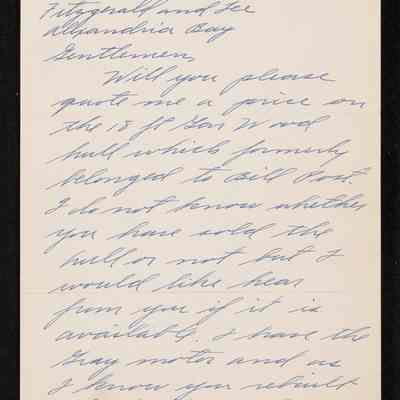 Fitzgerald and Lee
Alexandria Bay
Gentlemen,
Will you please
quote me a price on
the 18 ft Gar Wood
hull which formerly
belonged to Bill Post.
I do not know whether
you have sold the
hull or not but I
would like hear
from you if it is
available. I have the
Gray motor and as
I know you rebuilt